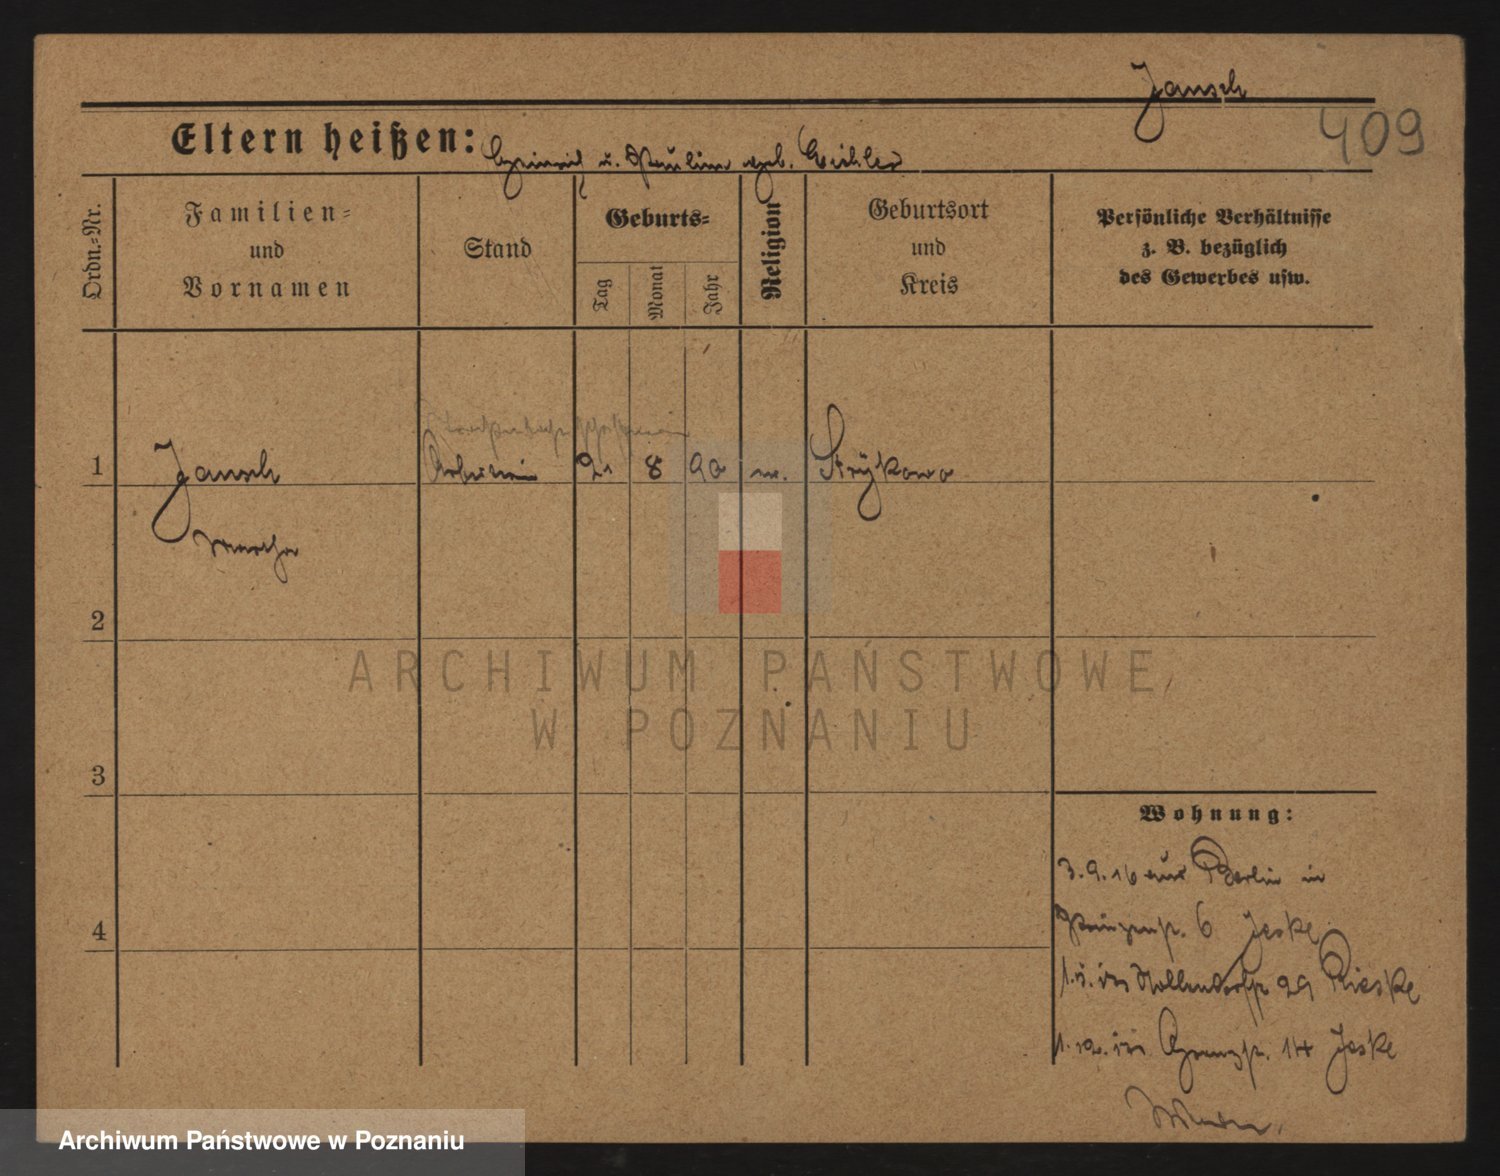 Jansch
409
Eltern heißen: Heinrich u. Pauline geb. Eichler
Ordn.-Nr.
Familien-
und
Vornamen
Stand
Geburts-
Tag
Monat
Jahr
Religion
Geburtsort
und
Kreis
Persönliche Verhältnisse
z. B. bezüglich
des Gewerbes usw.
1
Jansch
Arbeiterin
21 8 90
Strÿkowo
Martha
2
ARCHIWUM PAŃSTWOWE
W POZNANIU
3
Wohnung:
3.9.16 aus Berlin in
6 Jeske
4
Nollendorfstr 29 Rieske
14 Jeske
Archiwum Państwowe w Poznaniu